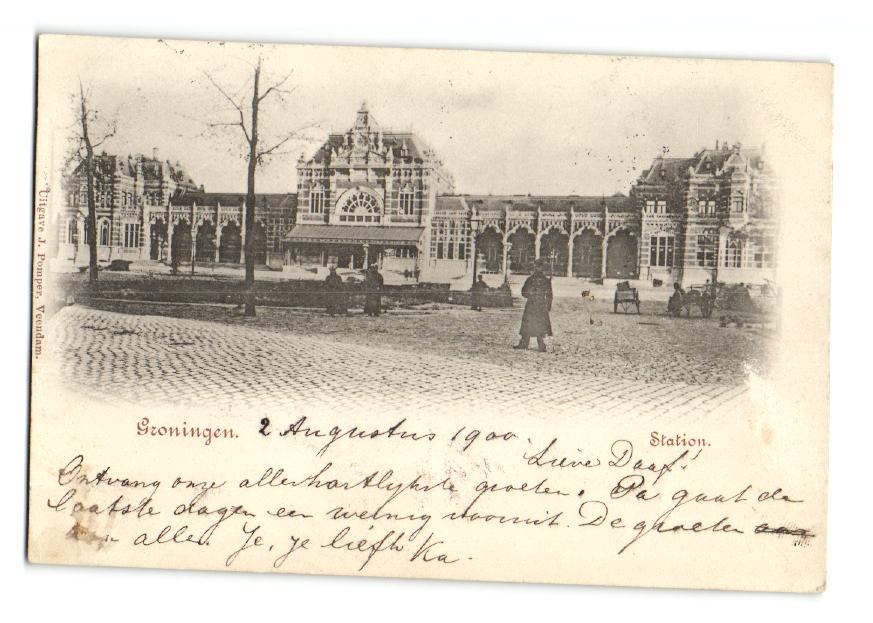 Uitgave J. Pomper, Veendam.
Groningen. 2 Augustus 1900. Station.
Lieve Daaf!
Ontvang onze allerhartlykste groeten. Pa gaat de
laatste dagen een weinig vooruit. De groeten
aan allen. Je, je liefh Ka.